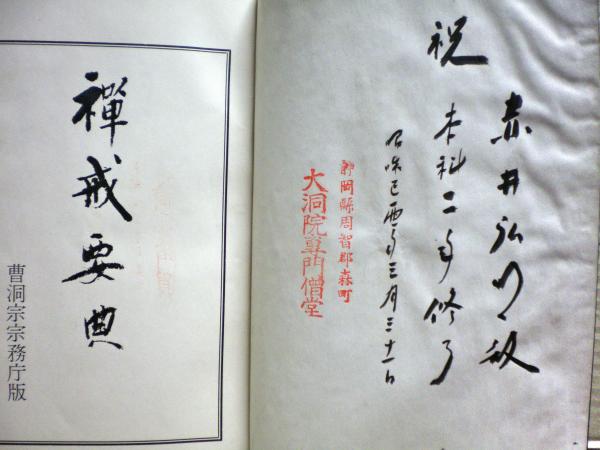 赤井弘殿
祝 本科二年修了
昭和己酉年三月三十一日
静岡縣周智郡森町
大洞院専門僧堂
禪戒要典
曹洞宗宗務庁版